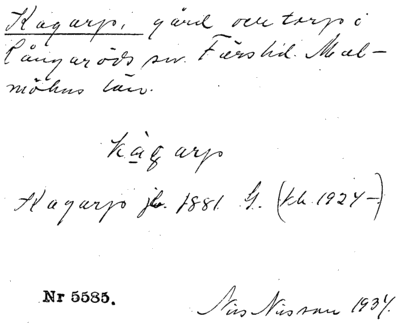 Kagarp, gård och torp i
Långaröds sn. Färs hd. Mal-
möhus län.
kàgarp
Kagarp jb. 1881 G. (kb. 1924-)
Nr 5585.
Nils Nilsson 1934.